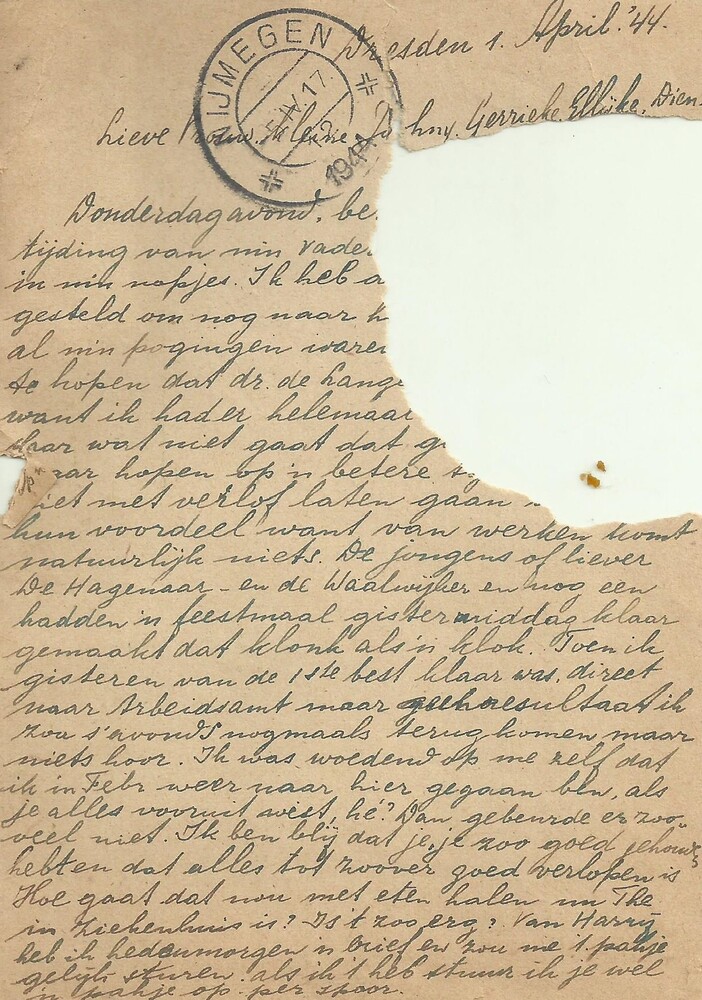 NIJMEGEN
17.
1944
Dresden 1. April. '44.
Lieve Vrouw. Kleine Johny. Gerrieke. Ellijke. Dien-
Donderdagavond, be
tijding van min Vader
in min nopjes. Ik heb a
gesteld om nog naar h
al min pogingen waren
te hopen dat dr. de Lange
want ik had er helemaal
Maar wat niet gaat dat g
maar hopen op 'n betere
niet met verlof laten gaan
hun voordeel want van werken komt
natuurlijk niets. De jongens of liever
De Hagenaar – en de Waalwijker en nog een
hadden 'n feestmaal gistermiddag klaar
gemaakt dat klonk als 'n klok. Toen ik
gisteren van de 1ste best klaar was, direct
naar Arbeidsamt maar geen resultaat ik
zou s'avonds nogmaals terug komen maar
niets hoor. Ik was woedend op me zelf dat
ik in Febr weer naar hier gegaan ben, als
je alles vooruit wist, hé? Dan gebeurde er zoo-
veel niet. Ik ben blij dat je, je zoo goed gehouden
hebt en dat alles tot zoover goed verlopen is
Hoe gaat dat nou met eten halen nu The
in Ziekenhuis is? Is 't zoo erg? Van Harry
heb ik hedenmorgen 'n brief en zou me 1 pakje
gelijk sturen. als ik 't heb stuur ik je wel
'n pakje op. per spoor.